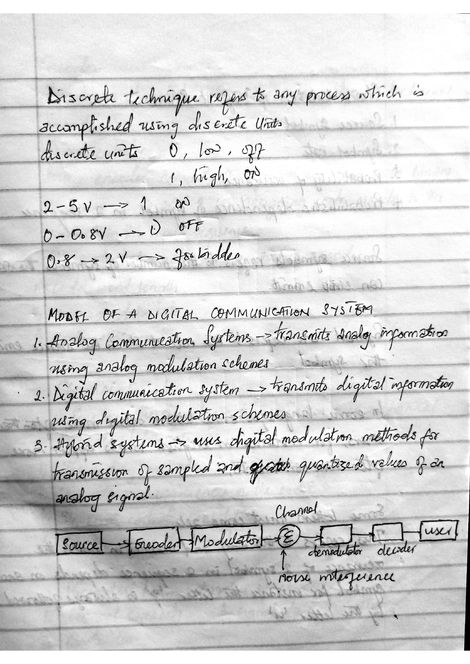 Discrete technique refers to any process which is
accomplished using discrete units
discrete units 0, low, off
1, high, ON
2-5V → 1 ON
0-0.8V → 0 OFF
0.8 → 2V → forbidden
MODEL OF A DIGITAL COMMUNICATION SYSTEM
1. Analog Communication Systems → transmits analog information
using analog modulation schemes
2. Digital communication system → transmits digital information
using digital modulation schemes
3. Hybrid systems → uses digital modulation methods for
transmission of sampled and quantized values of an
analog signal.
Channel
Source Encoder Modulator Σ demodulator decoder user
noise interference